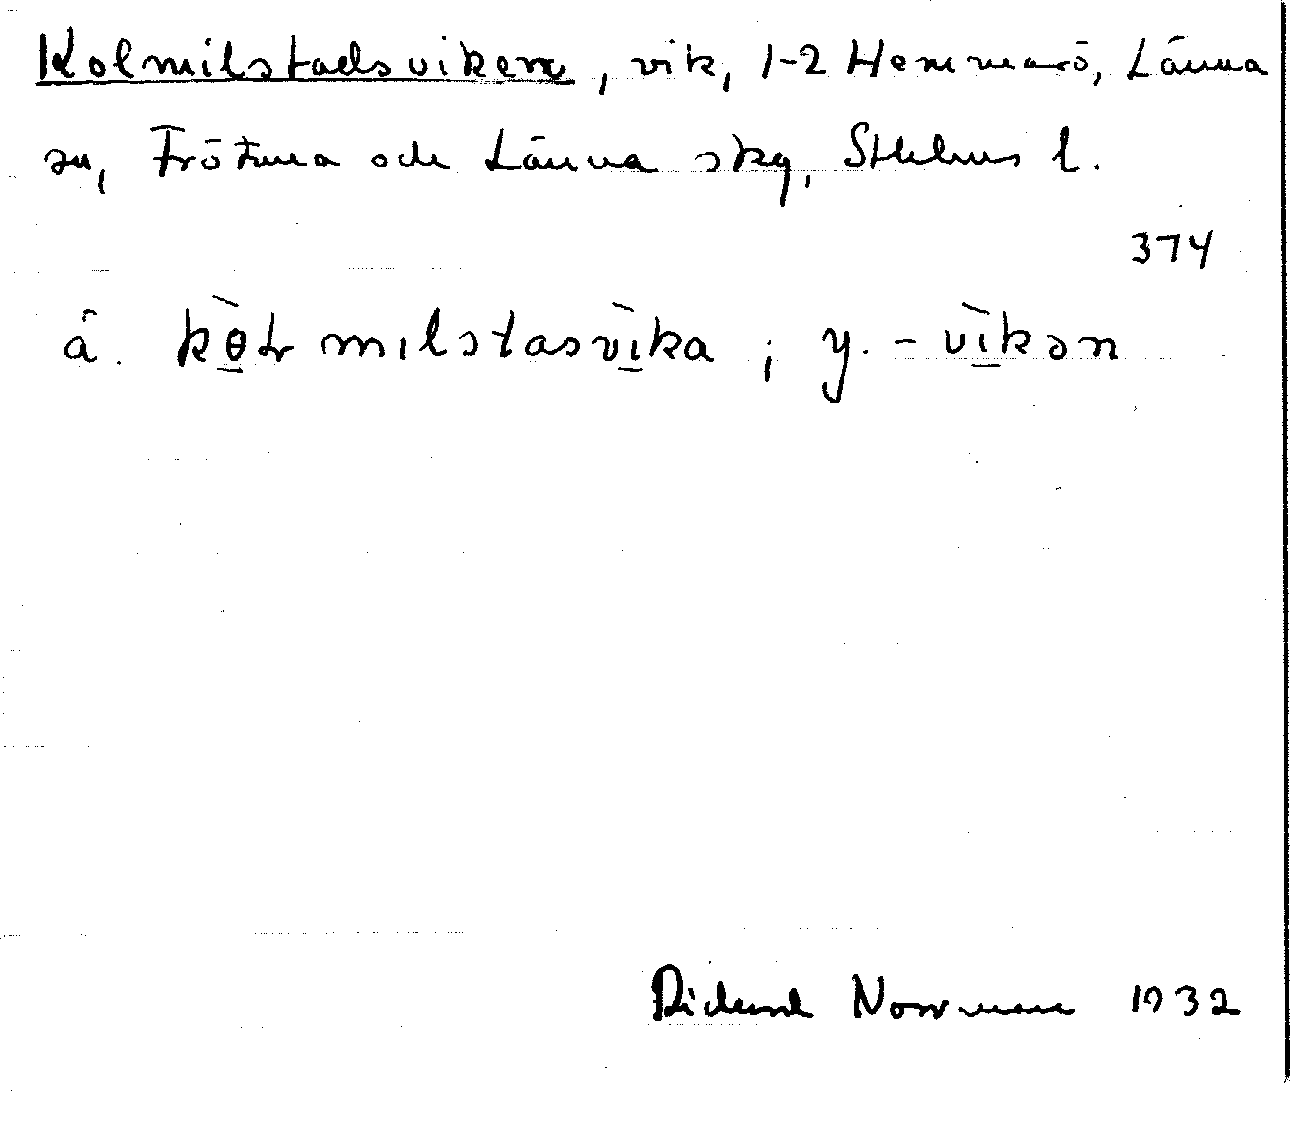 Kolmilstadsviken, vik, 1-2 Hemmarö, Länna
sn, Frötuna och Länna skg, Sthlms l.
374
ä. kөłmılstasvika ; y. -vikən
Norrman 1932